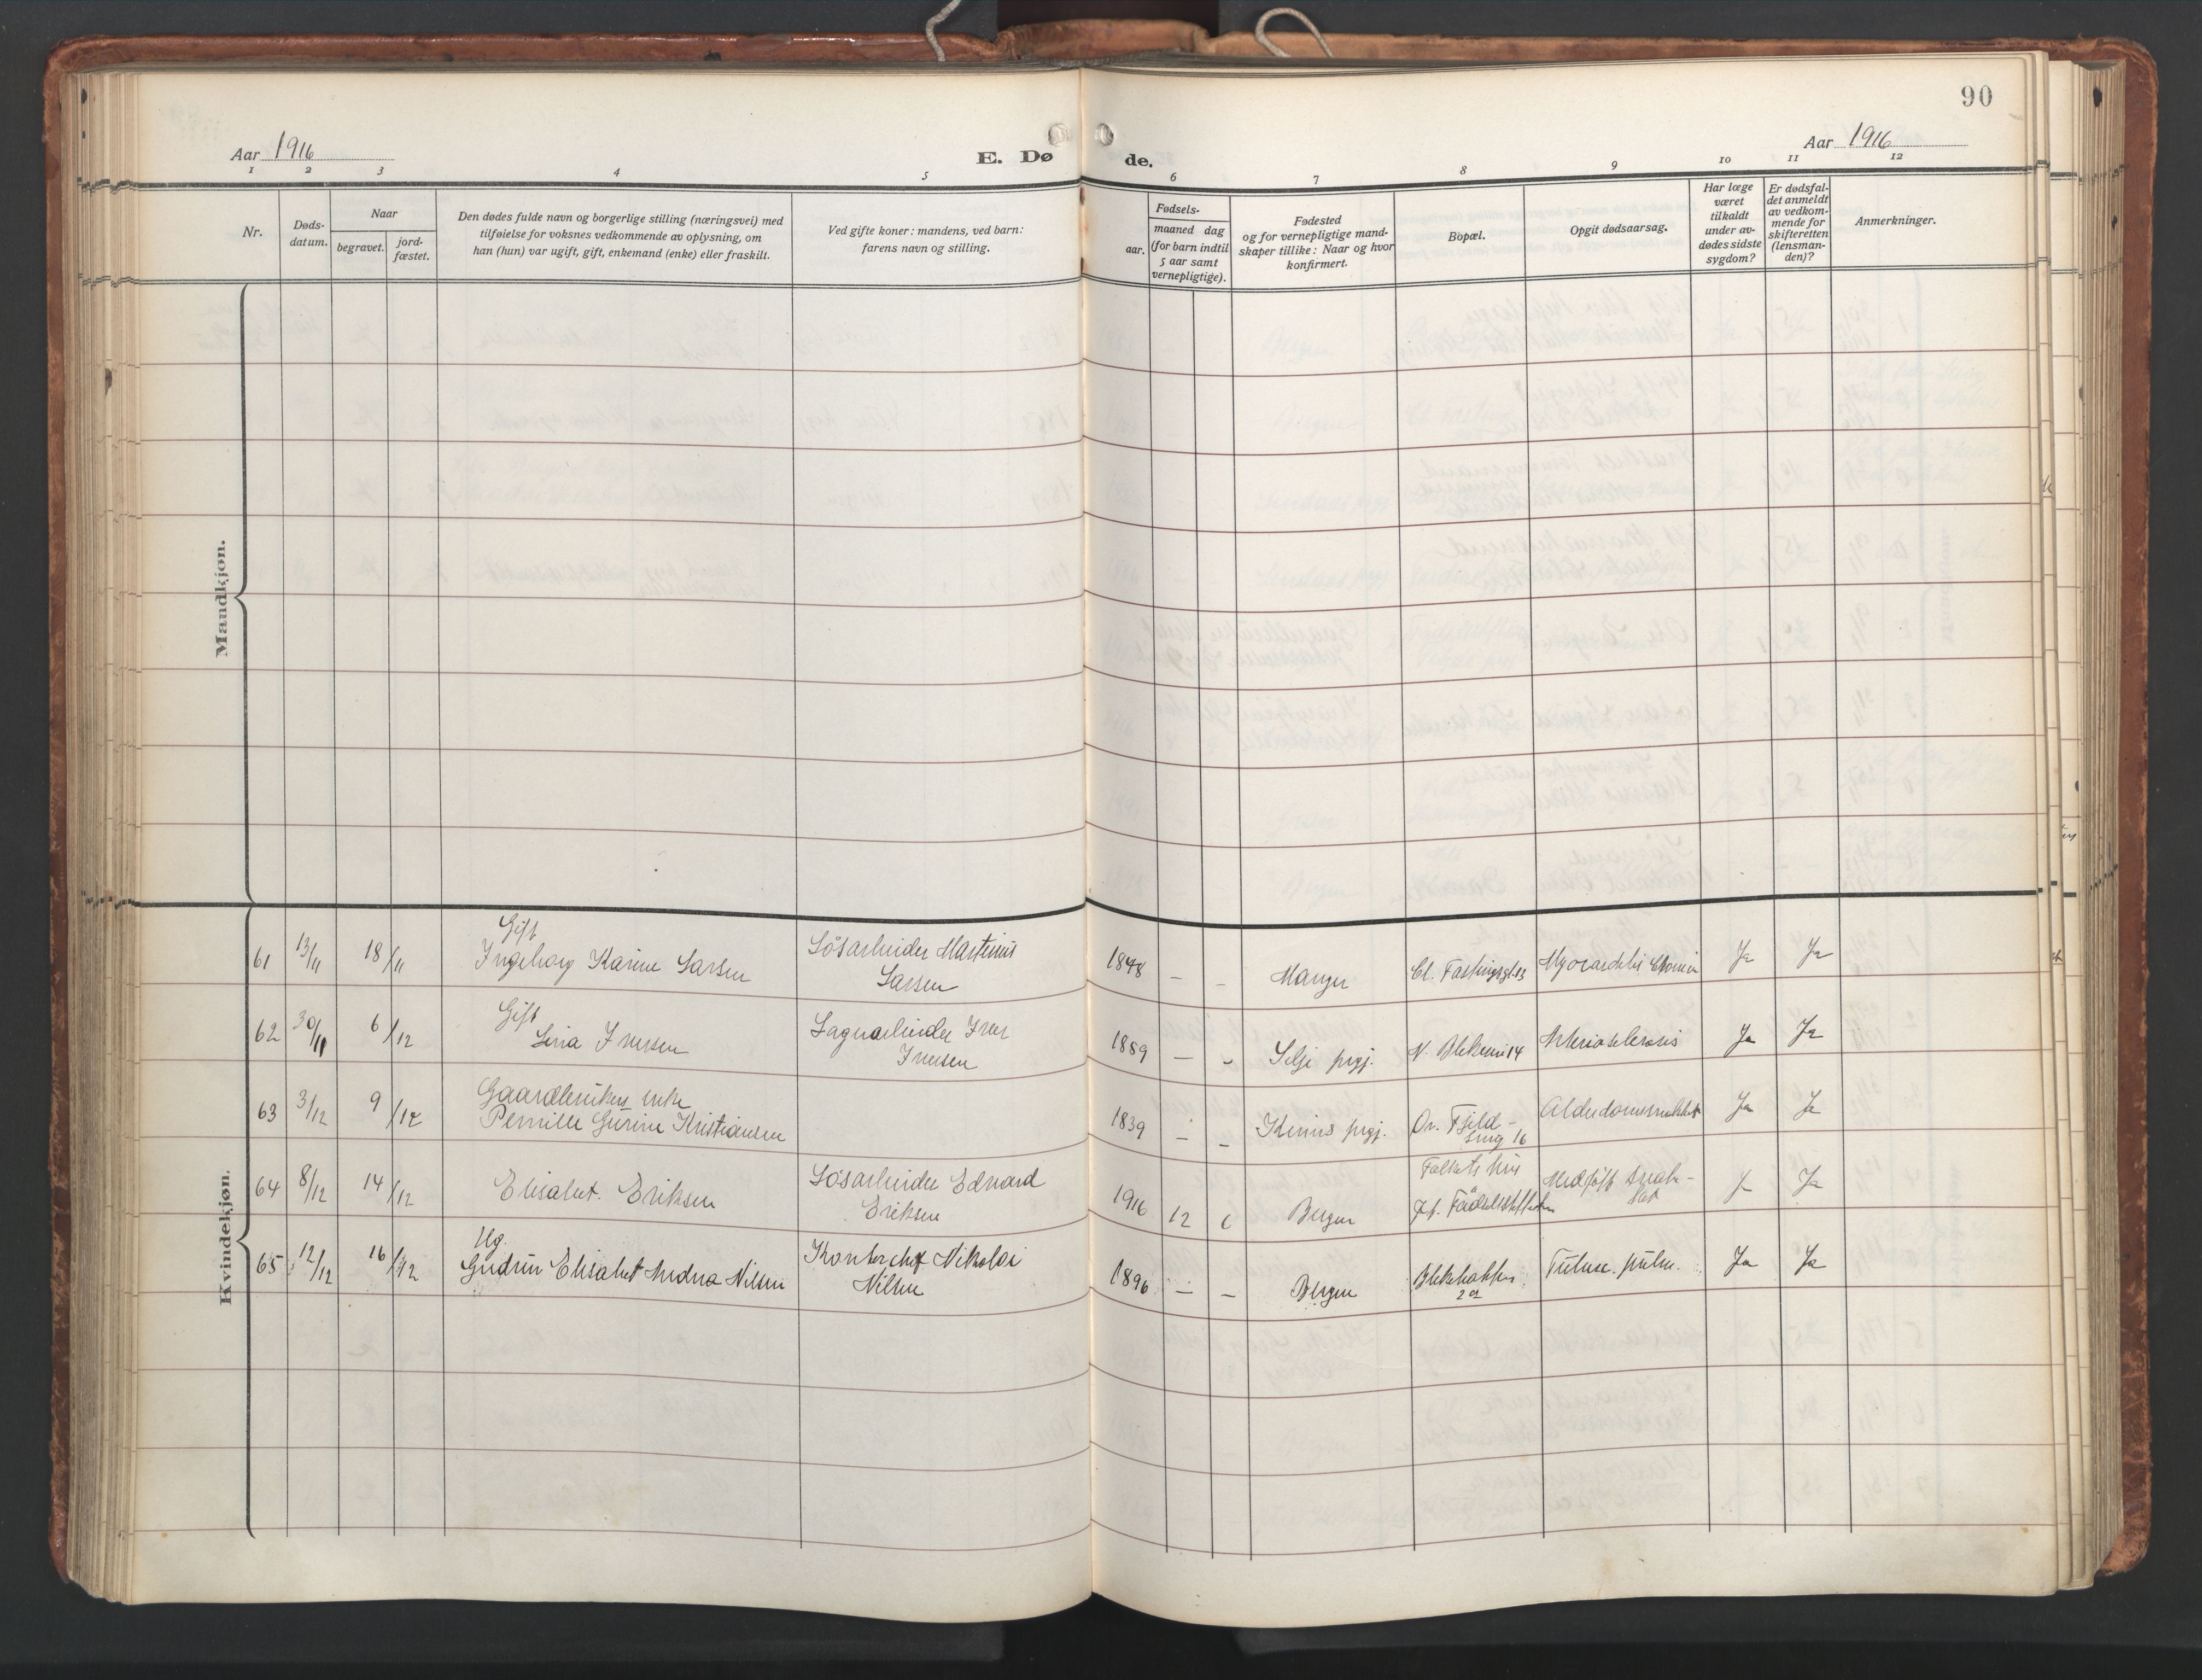 90
Aar 1916
E. Dø
de.
Aar 1916
1 2 3 4 5 6 7 8 9 10 11 12
Nr.
Døds-
datum.
Naar
begravet.
jord-
fæstet.
Den dødes fulde navn og borgerlige stilling (næringsvei) med
tilføielse for voksnes vedkommende av oplysning, om
han (hun) var ugift, gift, enkemand (enke) eller fraskilt.
Ved gifte koner: mandens, ved barn:
farens navn og stilling.
Fødsels-
aar.
maaned dag
(for barn indtil
5 aar samt
vernepligtige).
Fødested
og for vernepligtige mand-
skaper tillike: Naar og hvor
konfirmert.
Bopæl.
Opgit dødsaarsag.
Har læge
været
tilkaldt
under av-
dødes sidste
sygdom?
Er dødsfal-
det anmeldt
av vedkom-
mende for
skifteretten
(lensman-
den)?
Anmerkninger.
Mandkjøn.
Kvindekjøn.
Gift
61 13/11 18/11 Ingeborg Karine Larsen Løsarbeider Martinus
Larsen 1848 – – Manger Cl. Fastingsgt. 13 Myocarditis Ja Ja
Gift
62 30/11 6/12 Lina Iversen Iver
Iversen 1859 – – Selje prgj. N. Blekevei 14 Arteriosclerosis Ja Ja
63 3/12 9/12 enke
Pernille Gurine Kristiansen 1839 – – Kinns prgj. Øv. Fjeld-
smug 16 Ja Ja
64 8/12 14/12 Elisabet. Eriksen Løsarbeider Edvard
Eriksen 1916 12 6 Bergen Folkets hus
Medfødt
Ja Ja
Ug.
65 12/12 16/12 Gudrun Elisabet Nilsen Nikolai
Nilsen 1896 – – Bergen Blekebakken
2 Tuberc. pulm. Ja Ja